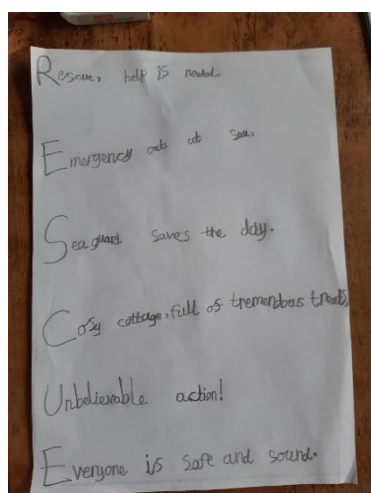 Rescue, help is needed.
Emergency out at sea.
Seaguard saves the day.
Cosy cottage, full of tremendous treats,
Unbelievable action!
Everyone is safe and sound.